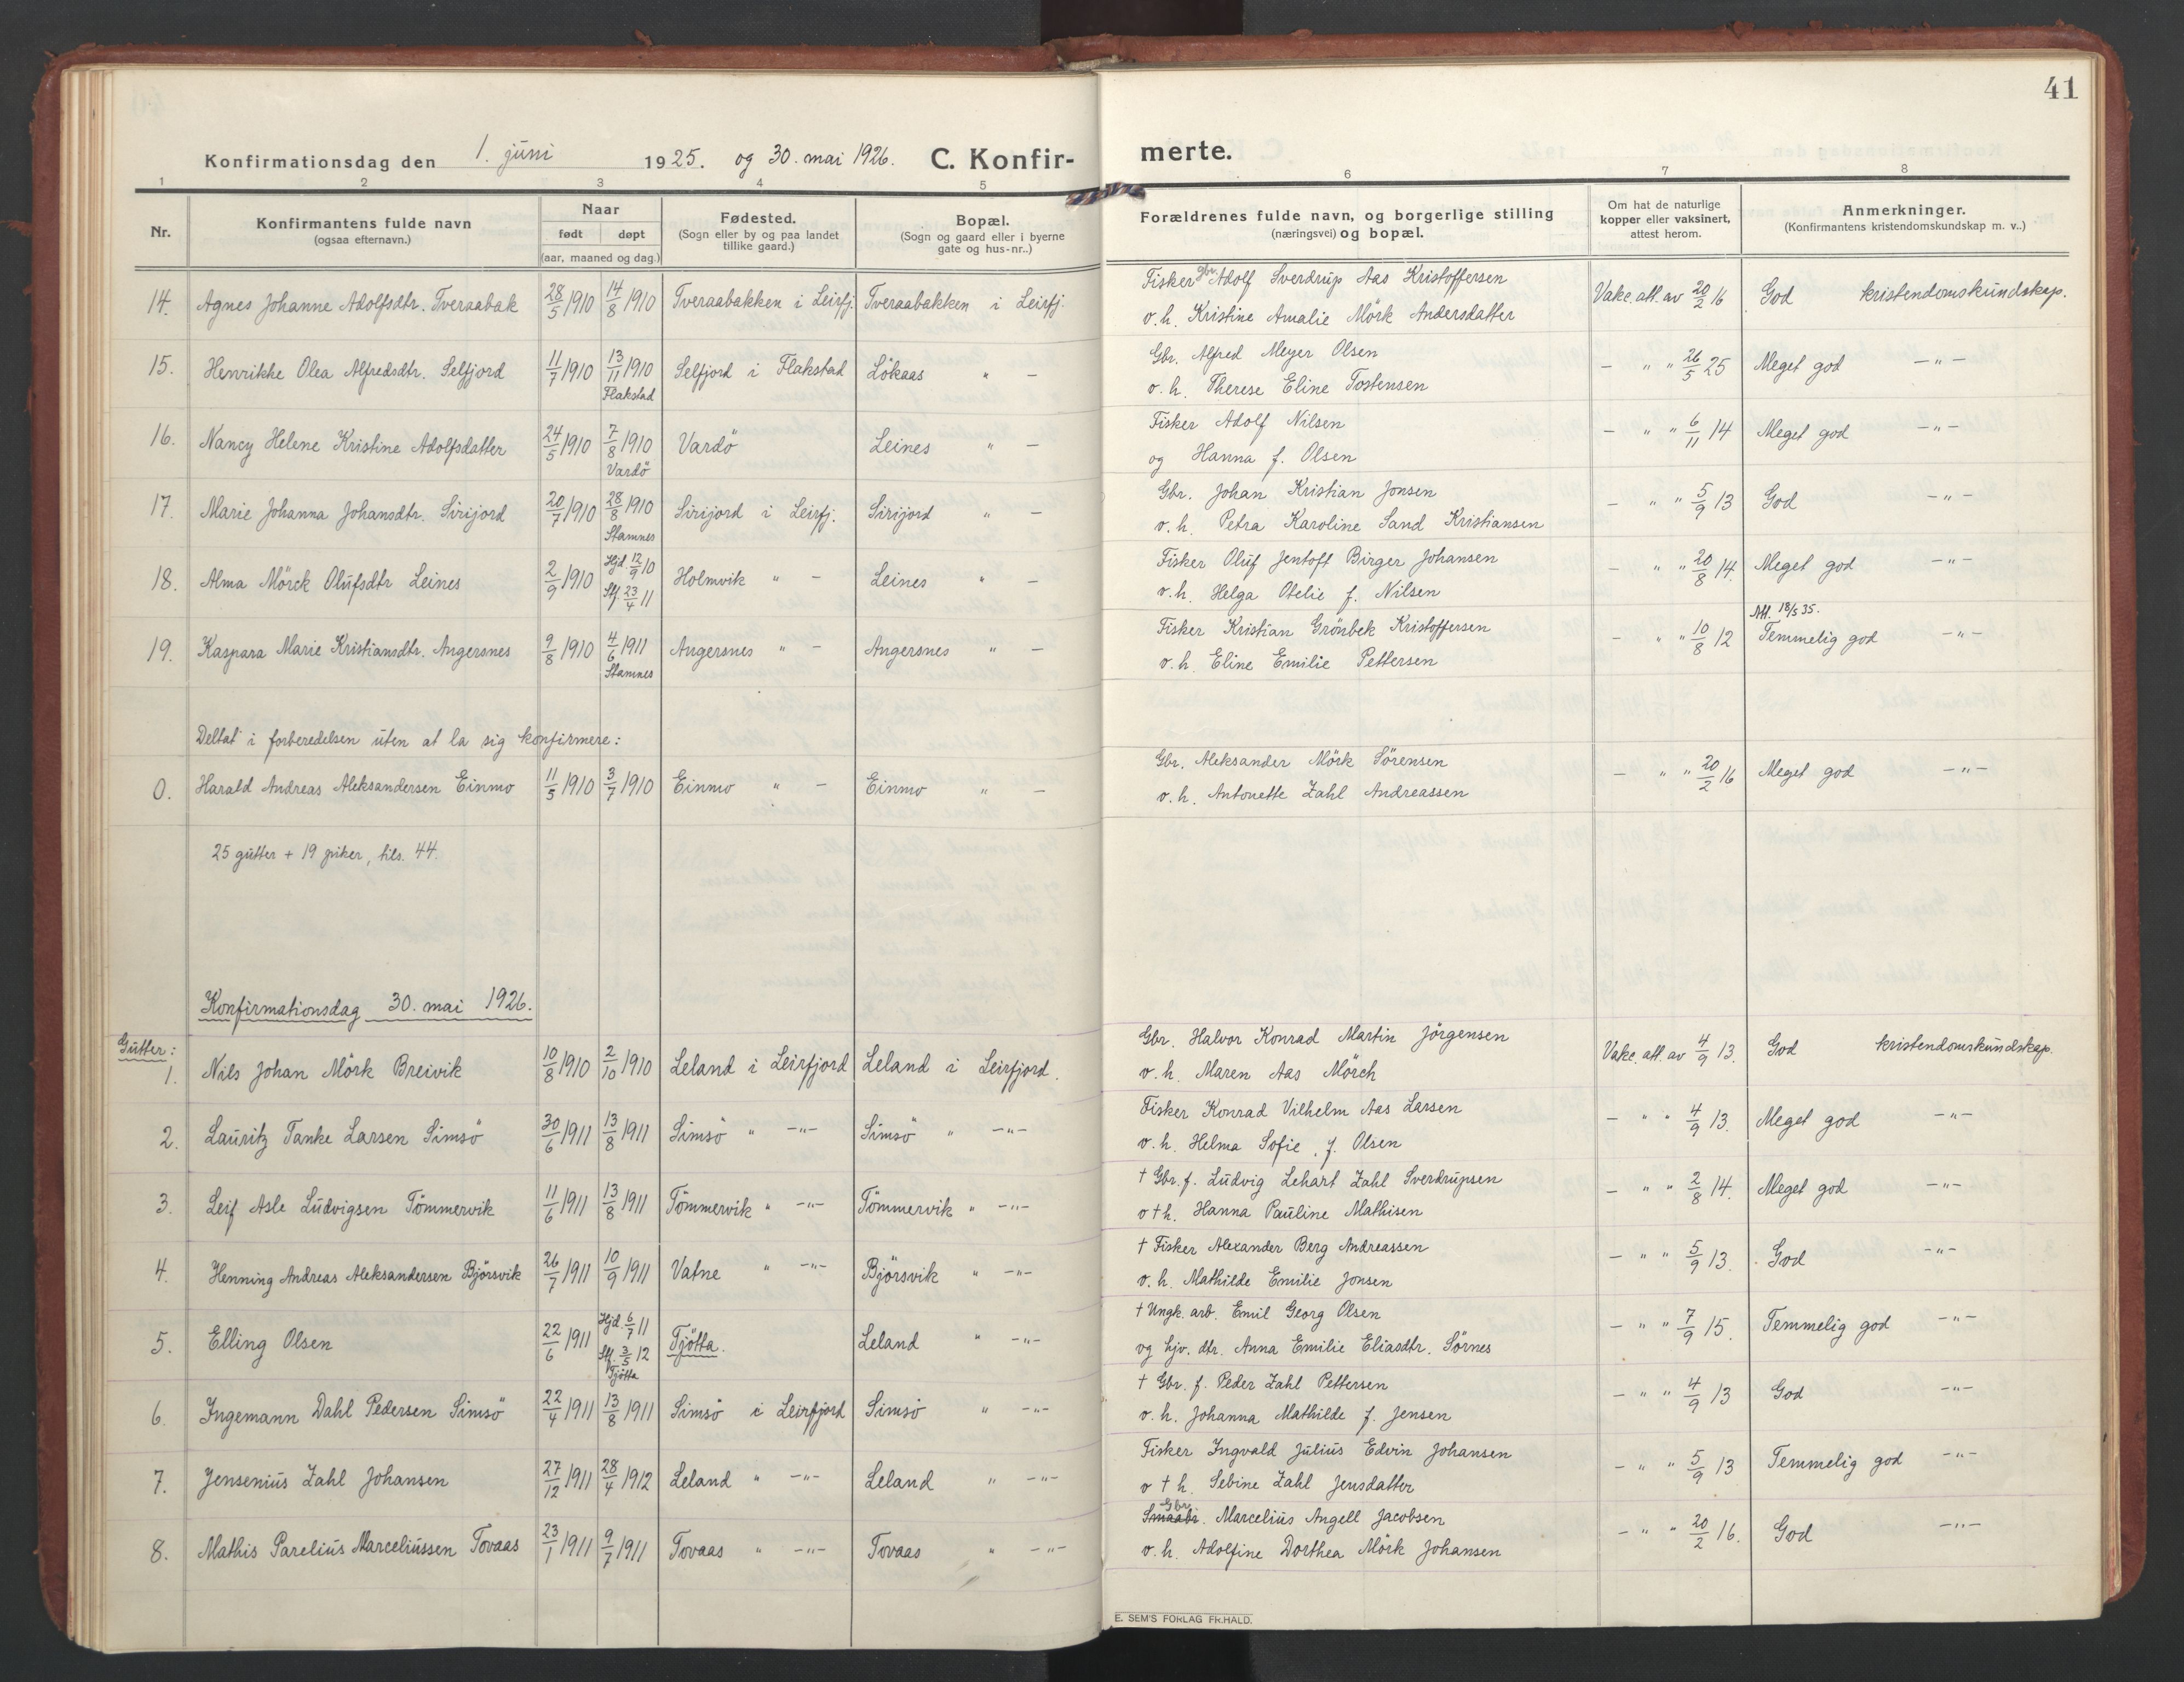 41
Konfirmationsdag den 1. juni 1925. og 30. mai 1926. C. Konfir- merte.
1 2 3 4 5 6 7 8
Nr.
Konfirmantens fulde navn
(ogsaa efternavn.)
Naar
født døpt
(aar, maaned og dag.)
Fødested.
(Sogn eller by og paa landet
tillike gaard.)
Bopæl.
(Sogn og gaard eller i byerne
gate og hus-nr..)
Forældrenes fulde navn, og borgerlige stilling
(næringsvei) og bopæl.
Om hat de naturlige
kopper eller vaksinert,
attest herom.
Anmerkninger.
(Konfirmantens kristendomskundskap m. v..)
14. Agnes Johanne Adolfsdtr. Tveraabak 28/5 1910 14/8 1910 Tveraabakken i Leirfj. Tveraabakken i Leirfj. Fisker gbr. Adolf Sverdrup Aas Kristoffersen Vakc. att. av 20/2 16 God kristendomskundskap.
o. h. Kristine Amalie Mörk Andersdatter
15. Henrikke Olea Alfredsdtr. Selfjord 11/7 1910 13/11 1910 Selfjord i Flakstad Lökaas " — Gbr. Alfred Meyer Olsen — " " 26/5 25 Meget god —"—
Flakstad o. h. Therese Eline Tostensen
16. Nancy Helene Kristine Adolfsdatter 24/5 1910 7/8 1910 Vardö Leines " — Fisker Adolf Nilsen — " " 6/11 14 Meget god —"—
Vardö og Hanna f. Olsen
17. Marie Johanna Johansdtr. Sirijord 20/7 1910 28/8 1910 Sirijord i Leirfj. Sirijord " — Gbr. Johan Kristian Jonsen — " " 5/9 13 God —"—
Stamnes o. h. Petra Karoline Sand Kristiansen
18. Alma Mörck Olufsdtr Leines 2/9 1910 Hjd. 12/9 10 Holmvik " — Leines " — Fisker Oluf Jentoft Birger Johansen — " " 20/8 14. Meget god —"—
Stf. 23/4 11 o. h. Helga Otelie f. Nilsen
Att. 18/5 35.
19. Kaspara Marie Kristiansdtr. Angersnes 9/8 1910 4/6 1911 Angersnes " — Angersnes " — Fisker Kristian Grönbek Kristoffersen — " " 10/8 12 Temmelig god —"—
Stamnes o. h. Eline Emilie Pettersen
Deltat i forberedelsen uten at la sig konfirmere:
0. Harald Andreas Aleksandersen Einmo 11/5 1910 3/7 1910 Einmo " — Einmo " — Gbr. Aleksander Mörk Sörensen — " " 20/2 16 Meget god —"—
o. h. Antonette Zahl Andreassen
25 gutter + 19 piker, tils. 44.
Konfirmationsdag 30. mai 1926.
Gutter:
1. Nils Johan Mörk Breivik 10/8 1910 2/10 1910 Leland i Leirfjord Leland i Leirfjord. Gbr. Halvor Konrad Martin Jörgensen Vakc. att. av 4/9 13. God kristendomskundskap.
o. h. Maren Aas Mörch
2. Lauritz Tanke Larsen Simsö 30/6 1911 13/8 1911 Simsö " —"— Simsö " —"— Fisker Konrad Vilhelm Aas Larsen — " " 4/9 13. Meget god —"—
o. h. Helma Sofie, f. Olsen
3. Leif Asle Ludvigsen Tömmervik 11/6 1911 13/8 1911 Tömmervik " —"— Tömmervik " —"— † Gbr. f. Ludvig Lehart Zahl Sverdrupsen — " " 2/8 14. Meget god —"—
o † h. Hanna Pauline Mathisen
4. Henning Andreas Aleksandersen Björsvik 26/7 1911 10/9 1911 Vatne " —"— Björsvik " —"— † Fisker Alexander Berg Andreassen — " " 5/9 13. God —"—
o. h. Mathilde Emilie Jonsen
5. Elling Olsen 22/6 1911 Hjd. 6/7 11 Tjötta. Leland " —"— † Ungk. arb. Emil Georg Olsen — " " 7/9 15. Temmelig god —"—
Stf. 3/5 12 og hjv. dtr. Anna Emilie Eliasdtr. Sörnes
Tjötta
6. Ingemann Dahl Pedersen Simsö 22/4 1911 13/8 1911 Simsö i Leirfjord Simsö " —"— † Gbr. f. Peder Zahl Pettersen — " " 4/9 13 God —"—
o. h. Johanna Mathilde f. Jensen
7. Jensenius Zahl Johansen 27/12 1911 28/4 1912 Leland " —"— Leland " —"— Fisker Ingvald Julius Edvin Johansen — " " 5/9 13 Temmelig god —"—
o † h. Sebine Zahl Jensdatter
8. Mathis Parelius Marceliussen Tovaas 23/1 1911 9/7 1911 Tovaas " —"— Tovaas " —"— Smaabr. Gbr. Marcelius Angell Jacobsen — " " 20/2 16. God —"—
o. h. Adolfine Dorthea Mörk Johansen
E. SEM'S FORLAG FR.HALD.